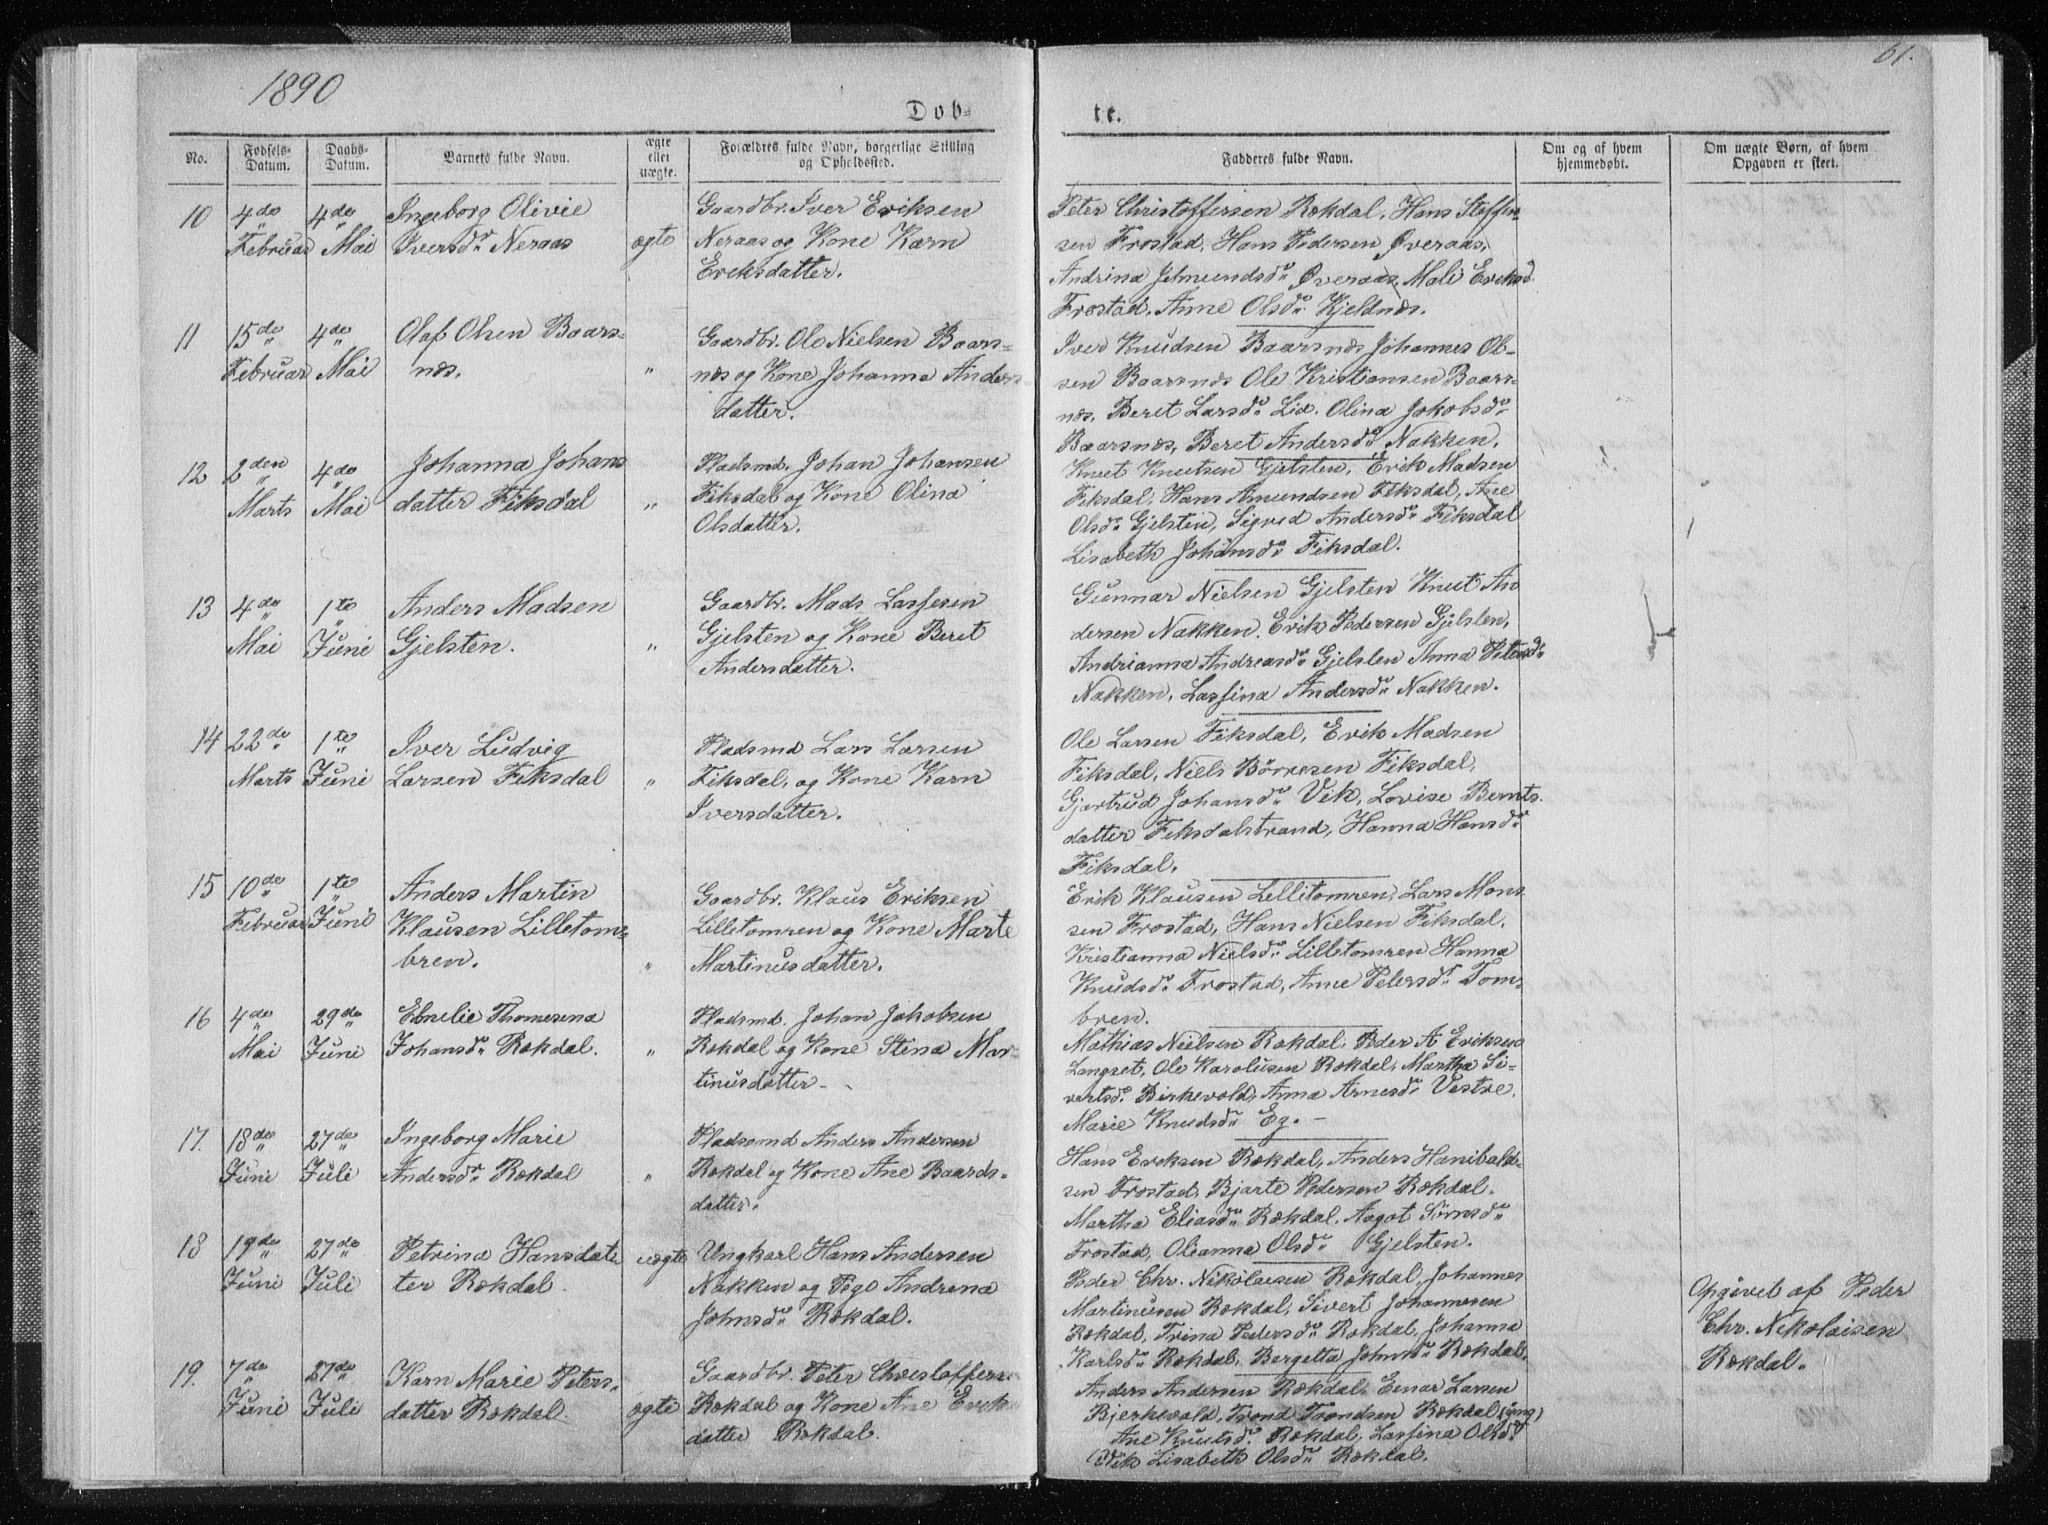 1890
61.
Døb-
te.
No.
Fødsels-
Datum.
Daabs-
Datum.
Barnets fulde Navn.
ægte
eller
uægte.
Forældres fulde Navn, borgerlige Stilling
og Opholdssted.
Fadderes fulde Navn.
Om og af hvem
hjemmedøbt.
Om uægte Børn, af hvem
Opgaven er skeet.
10
4de
Februar
4de
Mai
Ingeborg Olivie
Iversdr Neraas
ægte
Gaardbr. Iver Eriksen
Neraas og Kone Karn
Eriksdatter.
Peter Christoffersen Rekdal, Hans Steffen-
sen Frostad, Hans Pedersen Øveraas,
Andrina Jetmundsdr Øveraas, Mali Eriksd.
Frostad, Anne Olsdr Kjelsnes.
11
15de
Februar
4de
Mai
Olaf Olsen Baars-
næs.
"
Gaardbr. Ole Nielsen Baars-
næs og Kone Johanna Anders-
datter.
Iver Knudsen Baarsnæs Johannes Ol-
sen Baarsnæs Ole Kristiansen Baars-
næs, Beret Larsdr Lia, Olina Jakobsdr
Baarsnæs, Beret Andersdr Nakken.
12
2den
Marts
4de
Mai
Johanna Johans
datter Fiksdal
"
Pladsmd. Johan Johansen
Fiksdal og Kone Olina
Olsdatter.
Knut Knutsen Gjelsten, Erik Madsen
Fiksdal, Hans Amundsen Fiksdal, Ane
Olsdr Gjelsten, Sigrid Andersdr Fiksdal
Lisabeth Johansdr Fiksdal.
13
4de
Mai
1te
Juni
Anders Madsen
Gjelsten.
"
Gaardbr. Mads Lassesen
Gjelsten og Kone Beret
Andersdatter.
Gunnar Nielsen Gjelsten Knut An
dersen Nakken, Erik Pedersen Gjelsten,
Andrianna Andreasdr Gjelsten Anna Petersdr
Nakken, Lassina Andersdr Nakken.
14
22de
Marts
1te
Juni
Iver Ludvig
Larsen Fiksdal
"
Pladsmd Lars Larsen
Fiksdal, og Kone Karn
Iversdatter.
Ole Larsen Fiksdal, Erik Madsen
Fiksdal, Niels Børresen Fiksdal,
Gjartrud Johansdr Vik, Lovise Bernts.
datter Fiksdalstrand, Hanna Hansdr
Fiksdal.
15
10de
Februar
1te
Juni
Anders Martin
Klausen Lilletom-
bren.
"
Gaardbr. Klaus Eriksen
Lilletomren og Kone Marte
Martinusdatter.
Erik Klausen Lilletomren, Lars Mons
sen Frostad, Hans Nielsen Fiksdal,
Kristianna Nielsdr Lilletomren Hanna
Knudsdr Frostad, Anne Petersdr Tom-
bren.
16
4de
Mai
29de
Juni
Elnelie Thomesena
Johansdr Rekdal.
"
Pladsmd. Johan Jakobsen
Rekdal og Kone Stena Mar-
tinusdatter.
Mathias Nielsen Rekdal, Peder A Eriksen
Langset, Ole Karolusen Rekdal, Martha Si-
vertsdr Birkevold, Anna Arnesdr Vestre,
Marie Knudsdr Eg.
17.
18de
Juni
27de
Juli
Ingeborg Marie
Andersdr Rekdal
"
Pladsmd Anders Andersen
Rekdal og Kone Ane Baards-
datter.
Hans Eriksen Rekdal, Anders Hanibald-
sen Frostad, Bjarte Pedersen Rekdal.
Martha Eliasdr Rekdal, Aagot Simsdr
Frostad, Olianna Olsdr Gjelsten.
18
19de
Juni
27de
Juli
Petrina Hansdat-
ter Rekdal
uægte
Ungkarl Hans Andersen
Nakken og Pige Andrina
Johnsdr Rekdal.
Peder Chr. Nikolaisen Rekdal, Johannes
Martinusen Rekdal, Sivert Johannesen
Rekdal, Trina Pedersdr Rekdal, Johanna
Karlsdr Rekdal, Bergetta Johnsdr Rekdal.
Opgivet af Peder
Chr. Nikolaisen
Rekdal.
19.
7de
Juni
27de
Juli
Karn Marie Peters-
datter Rekdal.
ægte
Gaardbr. Peter Christoffers
Rekdal og Kone Ane Erik
datter Rekdal.
Anders Andersen Rekdal, Einar Larsen
Bjerkevold, Trond Trondsen Rekdal (ung)
Ane Knutsdr Rekdal, Lassina Olsdr
Vik Lisabeth Olsdr Rekdal.